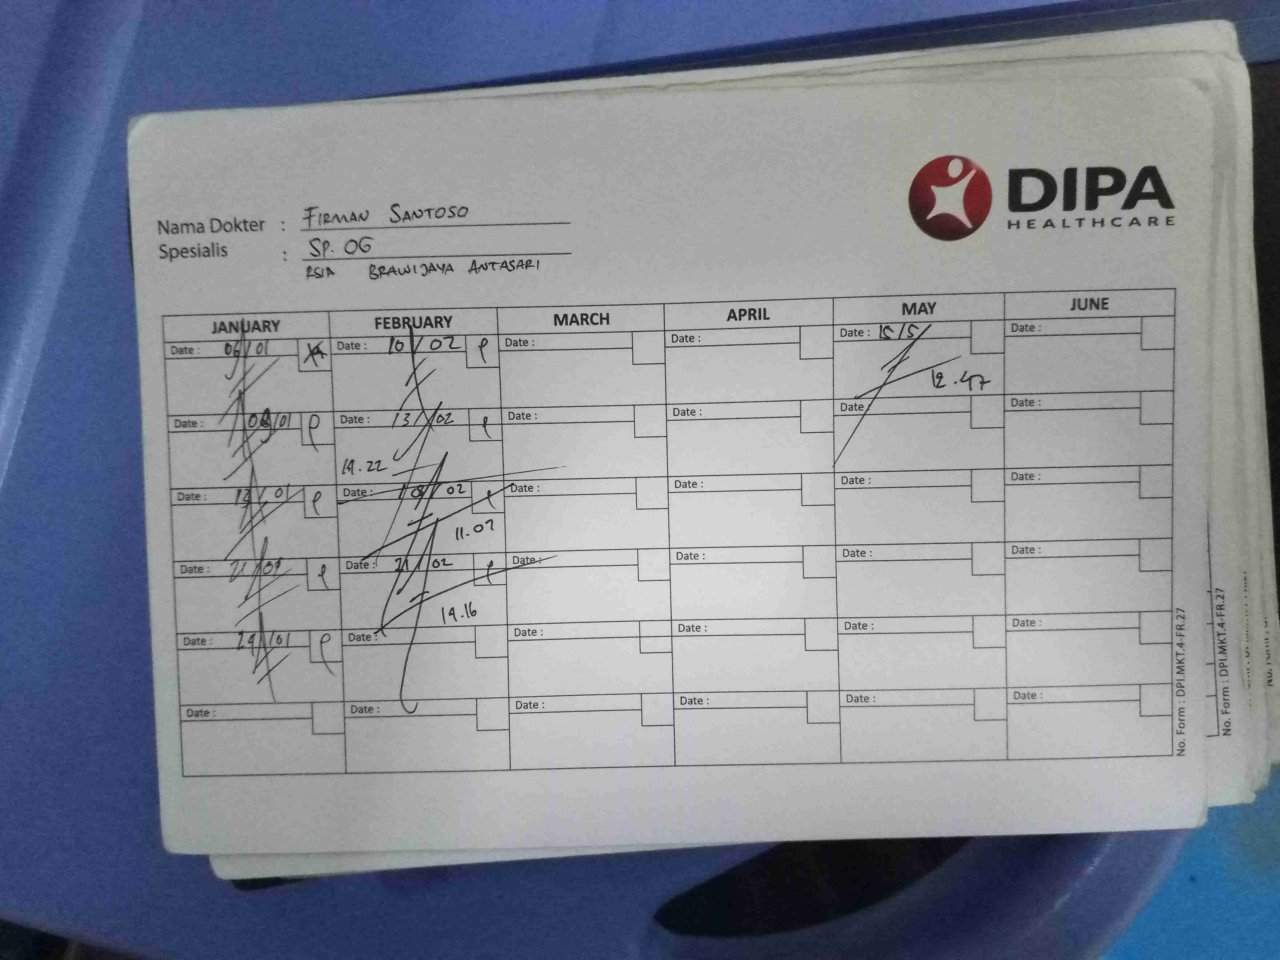 DIPA
HEALTHCARE
Nama Dokter : FIRMAN SANTOSO
Spesialis : SP. OG
RSIA BRAWIJAYA ANTASARI
JANUARY FEBRUARY MARCH APRIL MAY JUNE
Date : 06/01 Date : 10/02 Date : Date : Date : 15/5/ Date :
12.47
Date : 08/01 Date : 13/02 Date : Date : Date : Date :
19.22
Date : 13/01 Date : 18/02 Date : Date : Date : Date :
11.07
Date : 21/01 Date : 21/02 Date : Date : Date : Date :
19.16
Date : 29/01 Date : Date : Date : Date : Date :
Date : Date : Date : Date : Date : Date :
No. Form : DPI.MKT.4-FR.27
No. Form : DPI.MKT.4-FR.27